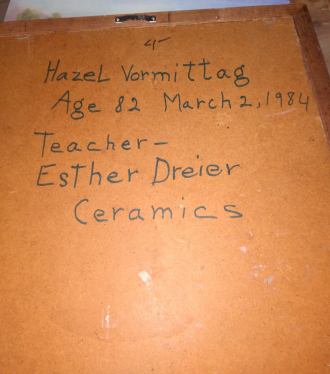 Hazel Vormittag
Age 82 March 2, 1984
Teacher -
Esther Dreier
Ceramics